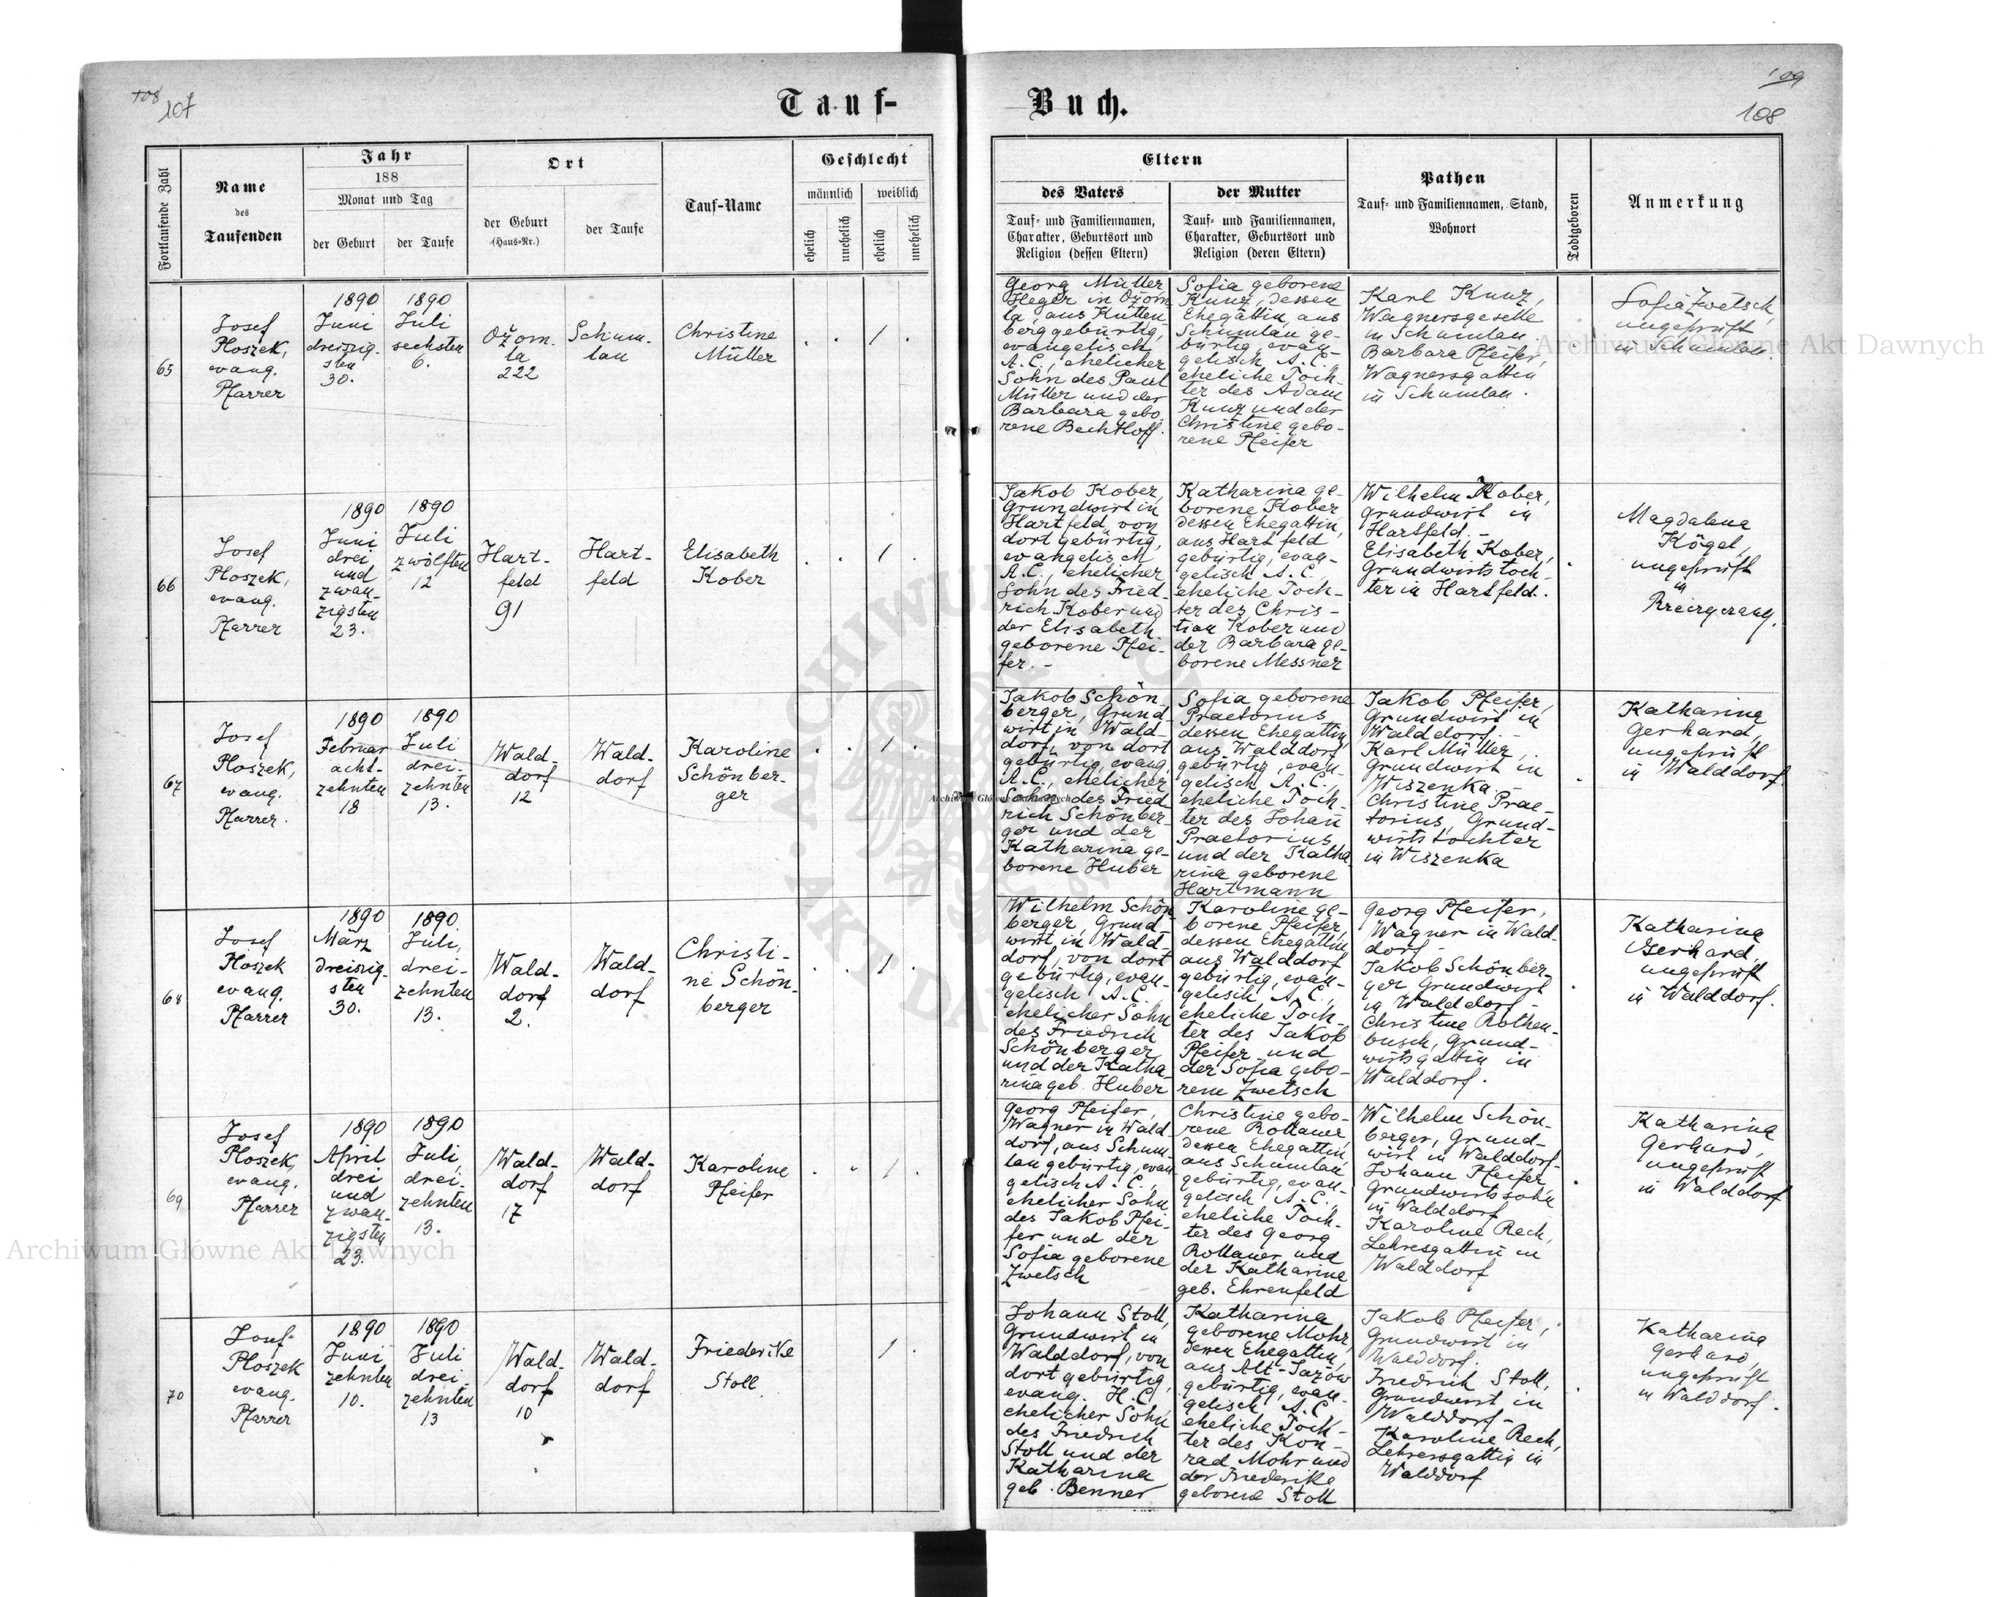 108
107
Tauf-
Buch.
109
108
Fortlaufende Zahl
Name
des
Taufenden
Jahr
188
Monat und Tag
der Geburt
der Taufe
Ort
der Geburt
(Haus-Nr.)
der Taufe
Tauf-Name
Geschlecht
männlich
weiblich
ehelich
unehelich
ehelich
unehelich
Eltern
des Vaters
Tauf- und Familiennamen,
Charakter, Geburtsort und
Religion (dessen Eltern)
der Mutter
Tauf- und Familiennamen,
Charakter, Geburtsort und
Religion (deren Eltern)
Pathen
Tauf- und Familiennamen, Stand,
Wohnort
Todtgeboren
Anmerkung
65
Josef
Ploszek,
evang.
Pfarrer
1890
Juni
dreiszig-
sten
30.
1890
Juli
sechsten
6.
Ożom-
la
222
Schum-
lau
Christine
Müller
1
Georg Müller
Heger in Ożom
la, aus Kutten
berg gebürtig,
evangelisch
A.C., ehelicher
Sohn des Paul
Müller und der
Barbara gebo
rene Bechtloff.
Sofia geborene
Kunz, dessen
Ehegattin, aus
Schumlau ge-
bürtig, evan-
gelisch A.C.
eheliche Toch-
ter des Adam
Kunz und der
Christine gebo-
rene Pfeifer
Karl Kunz,
Wagnersgeselle
in Schumlau.
Barbara Pfeifer,
Wagnersgattin
in Schumlau.
Sofia Zwetsch,
ungeprüft
in Schumlau.
66
Josef
Ploszek,
evang.
Pfarrer
1890
Juni
drei
und
zwan-
zigsten
23.
1890
Juli
zwölften
12
Hart-
feld
91
Hart-
feld
Elisabeth
Kober
1
Jakob Kober,
Grundwirt in
Hartfeld, von
dort gebürtig,
evangelisch
A.C., ehelicher
Sohn des Fried-
rich Kober und
der Elisabeth
geborene Pfei-
fer. -
Katharina ge-
borene Kober
dessen Ehegattin,
aus Hartfeld
gebürtig, evan-
gelisch A.C.
eheliche Toch-
ter des Chris-
tian Kober und
der Barbara ge-
borene Messner
Wilhelm Kober,
Grundwirt in
Hartfeld. -
Elisabeth Kober,
Grundwirtstoch-
ter in Hartfeld.
Magdalena
Kögel,
ungeprüft
in
67
Josef
Ploszek,
evang.
Pfarrer.
1890
Februar
acht-
zehnten
18
1890
Juli
drei-
zehnten
13.
Wald-
dorf
12
Wald-
dorf
Karoline
Schönber-
ger
1
Jakob Schön
berger, Grund-
wirt in Wald-
dorf, von dort
gebürtig, evang.
A.C., ehelicher
Sohn des Fried
rich Schönber-
ger und der
Katharina ge-
borene Huber
Sofia geborene
Praetorius
dessen Ehegattin
aus Walddorf
gebürtig, evan-
gelisch A.C.
eheliche Toch-
ter des Johan
Praetorius
und der Katha
rina geborene
Hartmann
Jakob Pfeifer,
Grundwirt in
Walddorf. -
Karl Müller,
Grundwirt in
Wiszenka. -
Christine Prae-
torius, Grund-
wirtstochter
in Wiszenka
Katharina
Gerhard,
ungeprüft
in Walddorf.
68
Josef
Ploszek
evang.
Pfarrer
1890
März
dreiszig-
sten
30.
1890
Juli,
drei-
zehnten
13.
Wald-
dorf
2.
Wald-
dorf
Christi-
ne Schön-
berger
1
Wilhelm Schön
berger, Grund
wirt in Wald-
dorf, von dort
gebürtig, evan-
gelisch A.C.
ehelicher Sohn
des Friedrich
Schönberger
und der Katha
rina geb. Huber
Karoline ge-
borene Pfeifer,
dessen Ehegattin
aus Walddorf
gebürtig, evan-
gelisch A.C.,
eheliche Toch-
ter des Jakob
Pfeifer und
der Sofia gebo-
rene Zwetsch
Georg Pfeifer,
Wagner in Wald-
dorf -
Jakob Schönber-
ger Grundwirt
in Walddorf -
Christine Rothen-
busch, Grund-
wirtsgattin in
Walddorf.
Katharina
Gerhard,
ungeprüft
in Walddorf.
69
Josef
Ploszek,
evang.
Pfarrer
1890
April
drei
und
zwan-
zigsten
23.
1890
Juli,
drei-
zehnten
13.
Wald-
dorf
17
Wald-
dorf
Karoline
Pfeifer
1
Georg Pfeifer,
Wagner in Wald
dorf, aus Schum-
lau gebürtig, evan
gelisch A.C.,
ehelicher Sohn
des Jakob Pfei-
fer und der
Sofia geborene
Zwetsch
Christine gebo-
rene Rollauer,
dessen Ehegattin
aus Schumlau
gebürtig, evan-
gelisch A.C.
eheliche Toch-
ter des Georg
Rollauer und
der Katharina
geb. Ehrenfeld
Wilhelm Schön-
berger, Grund-
wirt in Walddorf-
Johann Pfeifer
Grundwirtssohn
in Walddorf
Karoline Rech,
Lehresgattin in
Walddorf
Katharina
Gerhard,
ungeprüft
in Walddorf
70
Josef
Ploszek
evang.
Pfarrer
1890
Juni
zehnten
10.
1890
Juli
drei-
zehnten
13
Wald-
dorf
10
Wald-
dorf
Friederike
Stoll
1
Johann Stoll,
Grundwirt in
Walddorf, von
dort gebürtig,
evang. H.C.
ehelicher Sohn
des Friedrich
Stoll und der
Katharina
geb. Benner
Katharina
geborene Mohr,
dessen Ehegattin,
aus Alt-Jazow
gebürtig, evan-
gelisch A.C.
eheliche Toch-
ter des Kon-
rad Mohr und
der Friederike
geborene Stoll
Jakob Pfeifer,
Grundwirt in
Walddorf.
Friedrich Stoll,
Grundwirt in
Walddorf -
Karoline Rech,
Lehrersgattin in
Walddorf
Katharina
Gerhard,
ungeprüft
in Walddorf.
Archiwum Główne Akt Dawnych
Archiwum Główne Akt Dawnych
Archiwum Główne Akt Dawnych